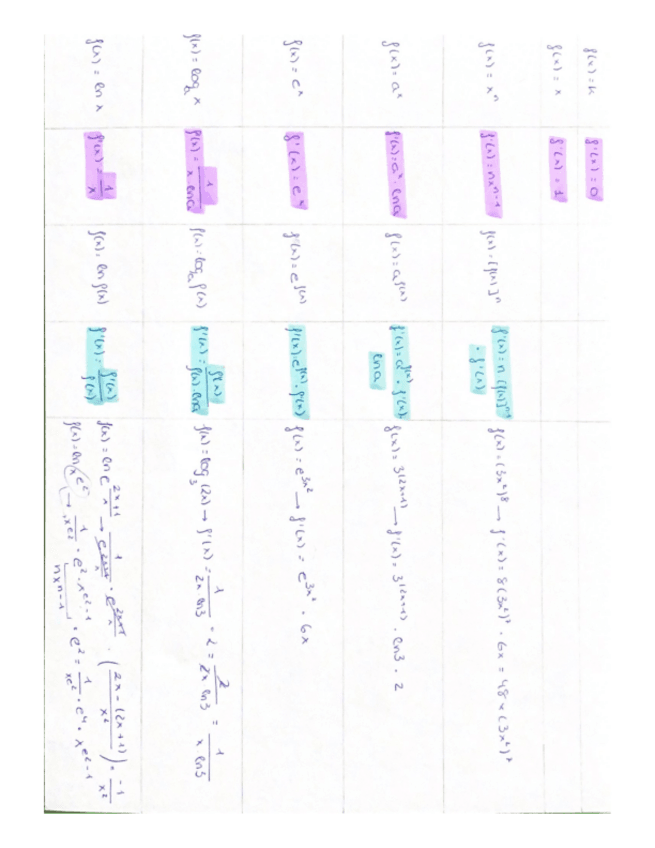 f(x) = k f'(x) = 0
f(x) = x f'(x) = 1
f(x) = xⁿ f'(x) = nxⁿ⁻¹ f(x) = [f(x)]ⁿ f'(x) = n · [f(x)]ⁿ⁻¹
· f'(x)
f(x) = (3x²)⁸ → f'(x) = 8(3x²)⁷ · 6x = 48x(3x²)⁷
f(x) = aˣ f'(x) = aˣ · ln a f(x) = a^f(x) f'(x) = a^f(x) · f'(x) ·
ln a
f(x) = 3^(2x+1) → f'(x) = 3^(2x+1) · ln3 · 2
f(x) = eˣ f'(x) = eˣ f(x) = e^f(x) f'(x) = e^f(x) · f'(x) f(x) = e^3x² → f'(x) = e^3x² · 6x
f(x) = logₐ x f'(x) = 1/(x ln a) f(x) = logₐ f(x) f'(x) = f'(x)/(f(x) · ln a) f(x) = log₃ (2x) → f'(x) = 1/(2x ln3) · 2 = 2/(2x ln3) = 1/(x ln3)
f(x) = ln x f'(x) = 1/x f(x) = ln f(x) f'(x) = f'(x)/f(x) f(x) = ln e^((2x+1)/x) → 1/e^((2x+1)/x) · e^((2x+1)/x) · ((2x - (2x+1))/x²) = -1/x²
1/xe² · e² · xe²⁻¹ · e² = 1/xe² · e⁴ · xe²⁻¹
nxⁿ⁻¹